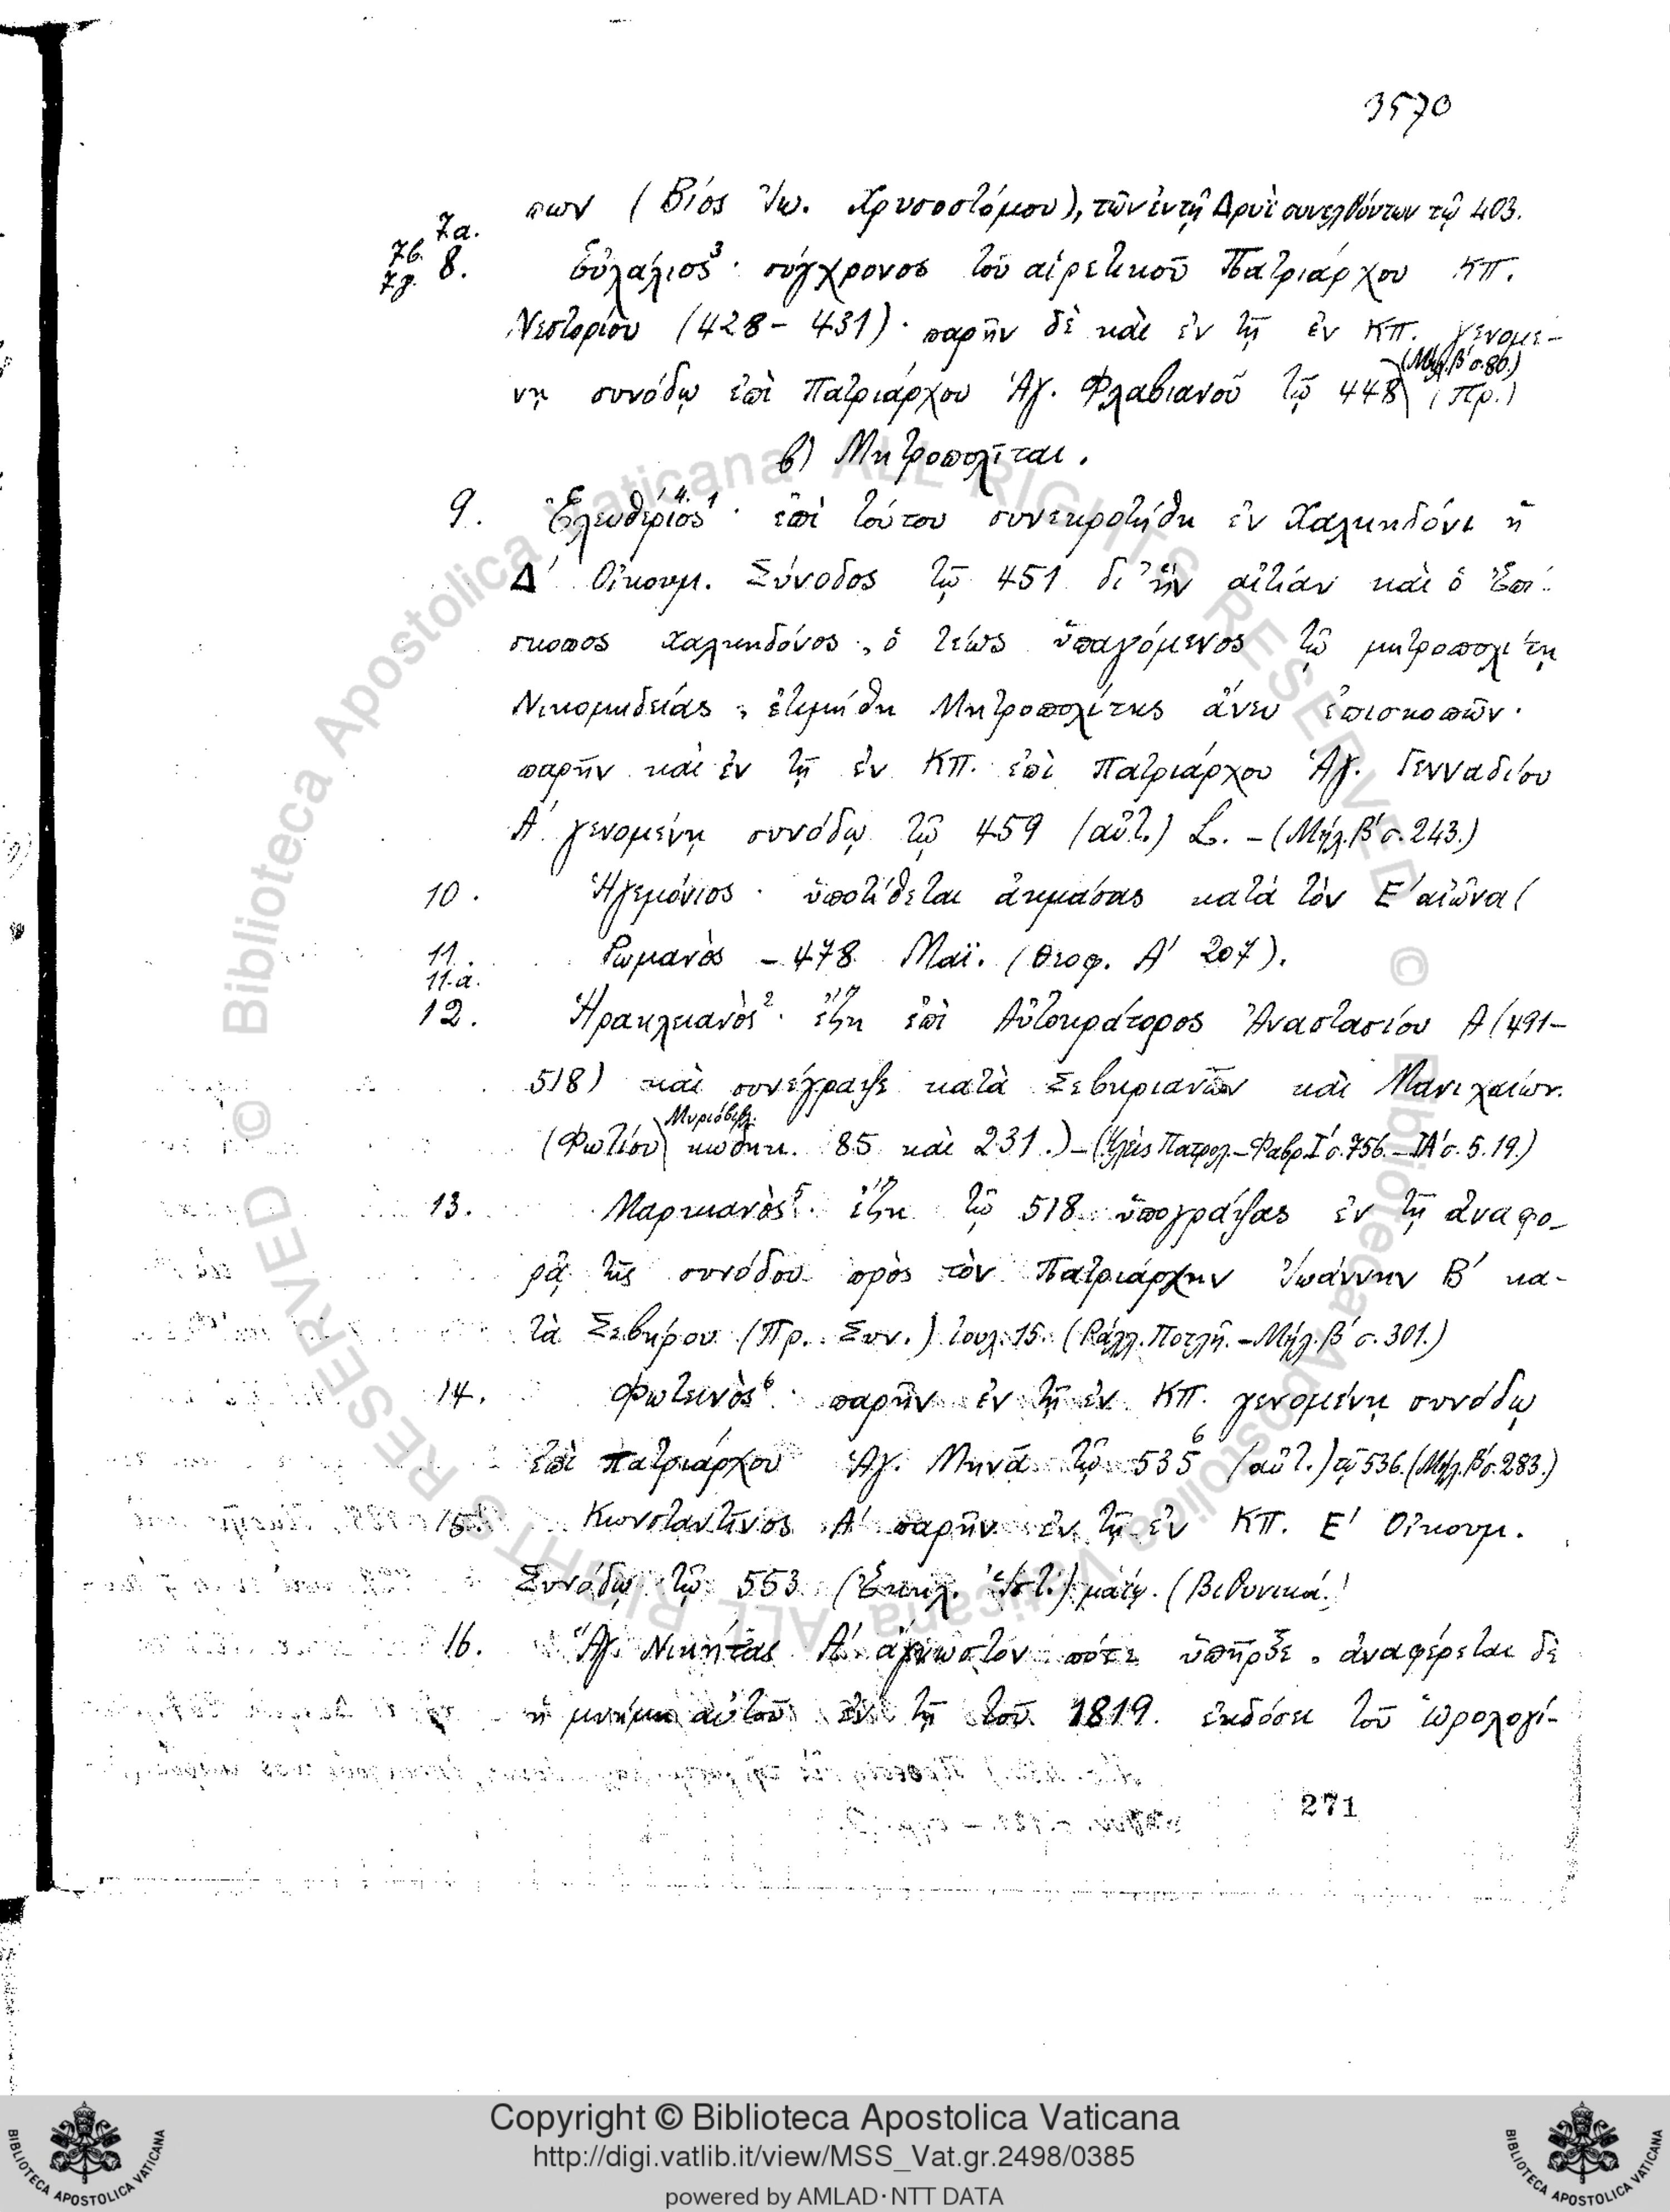 3570
πων (Βίος Ἰω. Χρυσοστόμου), τῶν ἐν τῇ Δρυῒ συνελθόντων τῷ 403.
7α.
7β. 8. Εὐλάλιος³· σύγχρονος τοῦ αἱρετικοῦ Πατριάρχου ΚΠ.
7γ.
Νεστορίου (428 - 431)· παρῆν δὲ καὶ ἐν τῇ ἐν ΚΠ. γενομέ-
(Μηλ. Β΄ σ. 80.)
νῃ συνόδῳ ἐπὶ Πατριάρχου Ἁγ. Φλαβιανοῦ τῷ 448 (Πρ.)
β) Μητροπολῖται.
9. Ἐλευθέριος⁴·¹· ἐπὶ τούτου συνεκροτήθη ἐν Χαλκηδόνι ἡ
Δ΄ Οἰκουμ. Σύνοδος τῷ 451 δι' ἣν αἰτίαν καὶ ὁ Ἐπί-
σκοπος Χαλκηδόνος, ὁ τέως ὑπαγόμενος τῷ μητροπολίτῃ
Νικομηδείας, ἐτιμήθη Μητροπολίτης ἄνευ ἐπισκοπῶν·
παρῆν καὶ ἐν τῇ ἐν ΚΠ. ἐπὶ Πατριάρχου Ἁγ. Γενναδίου
Α΄ γενομένῃ συνόδῳ τῷ 459 (αὐτ.) - (Μηλ. Β΄ σ. 243.)
10. Ἡγεμόνιος· ὑποτίθεται ἀκμάσας κατὰ τὸν Ε΄ αἰῶνα (
11. Ρωμανὸς - 478 Μαϊ. (Θεοφ. Α΄ 207).
11.α.
12. Ἡρακλειανὸς²· ἔζη ἐπὶ Αὐτοκράτορος Ἀναστασίου Α (491-
518) καὶ συνέγραψε κατὰ Σεβηριανῶν καὶ Μανιχαίων.
Μυριόβιβλ.
(Φωτίου κώδηκ. 85 καὶ 231.) - ( Πατρολ. - Φαβρ. Ι΄ σ. 756. - ΙΑ΄ σ. 5. 19.)
13. Μαρκιανὸς⁵· ἔζη τῷ 518 ὑπογράψας ἐν τῇ ἀναφο-
ρᾷ τῆς συνόδου πρὸς τὸν Πατριάρχην Ἰωάννην Β΄ κα-
τὰ Σεβήρου (Πρ. Συν.) Ιουλ. 15. (Ράλλ. Ποτλῆ. - Μηλ. Β΄ σ. 301.)
14. Φωτεινὸς⁶· παρῆν ἐν τῇ ἐν ΚΠ. γενομένῃ συνόδῳ
6
ἐπὶ πατριάρχου Ἁγ. Μηνᾶ τῷ 535 (αὐτ.) τῷ 536. (Μηλ. Β΄ σ. 283.)
15. Κωνσταντῖνος Α΄ παρῆν ἐν τῇ ἐν ΚΠ. Ε΄ Οἰκουμ.
Συνόδῳ τῷ 553 (Ἐκκλ. Ἱστ.) (Βιθυνικά.)
16. Ἅγ. Νικήτας Α΄ ἄγνωστον πότε ὑπῆρξε, ἀναφέρεται δὲ
ἡ μνήμη αὐτοῦ ἐν τῇ τοῦ 1819. ἐκδόσει τοῦ ὡρολογί-
271
© Biblioteca Apostolica Vaticana ALL RIGHTS RESERVED © Biblioteca Apostolica Vaticana ALL RIGHTS RESERVED
Copyright © Biblioteca Apostolica Vaticana
http://digi.vatlib.it/view/MSS_Vat.gr.2498/0385
powered by AMLAD·NTT DATA
BIBLIOTECA APOSTOLICA VATICANA
BIBLIOTECA APOSTOLICA VATICANA